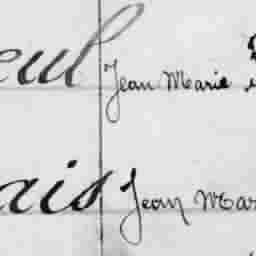 eul Jean Marie
ais Jean Mar